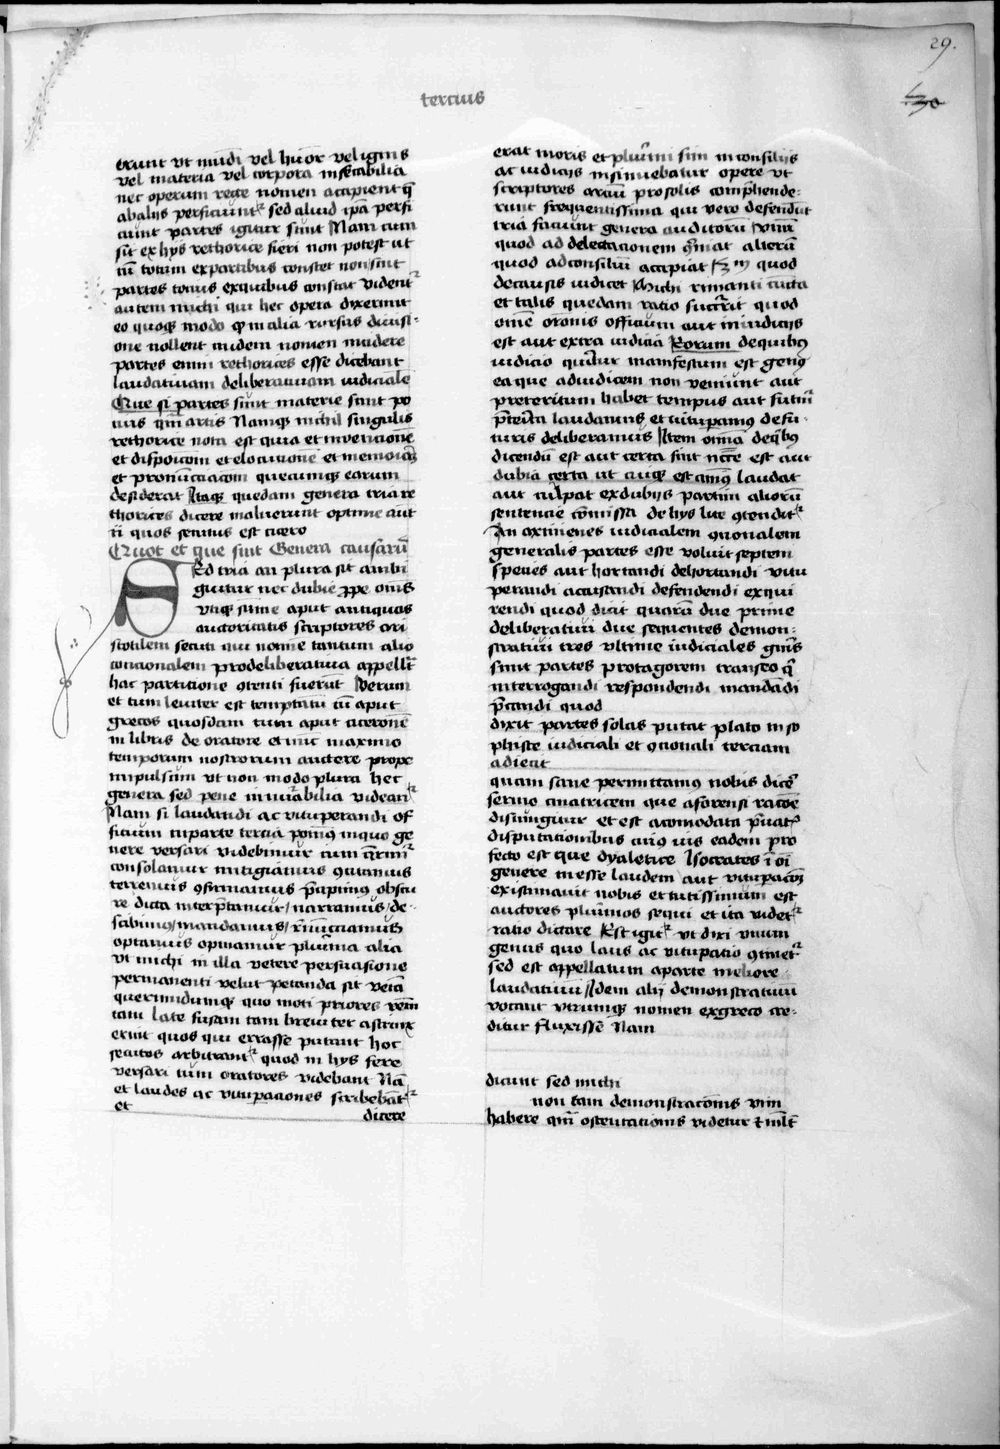 29.
30
tercius
erunt ut mundi vel humor vel ignis
vel materia vel corpora insecabilia
nec operum recte nomen accipient q̄
ab aliis perficiunt᷑ sed aliud ip̄a perfi
ciunt partes igitur sunt Nam cum
sit ex hys rethorice fieri non potest ut
cū totum ex partibus constet non sint
partes totius ex quibus constat vident᷑
autem michi qui hec opera dixerunt
eo quoqꝫ modo  in alia rursus diuisi-
one nollent in idem nomen incidere
partes enim rethorices esse dicebant
laudatiuam deliberatiuam iudicialē
Que si partes sunt materie sunt po
cius qm̄ artis Namqꝫ  singulis
rethorice tota est quia et inuencionē
et disposicōm et elocucionē et memoriaꝫ
et pronūciacōm quecunqꝫ earum
desiderat Itaqꝫ quedam genera tria re
thorices dicere maluerunt optime aut
ē ii quos secutus est cicero
Quot et que sint Genera causarū
Sed tria an plura sit ambi
guitur nec dubie ꝓpe om̄s
utiqꝫ sume aput antiquos
auctoritatis scriptores ari
stotilem secuti qui nomē tantum alio
concionalem pro deliberatiua appellt̄
hac particione ꝯtenti fuerūt Verum
et tum leuiter est temptatū cū aput
grecos quosdam tum aput ciceronē
in libris de oratore et nūc maximo
temporum nostrorum auctore prope
impulsum ut non modo plura hec
genera sed pene innuābilia videant᷑
Nam si laudandi ac vituperandi of
ficium in parte tercia  in quo ge
nere versari videbimur cum q̄rimur
consolamur mitigamus ꝯcitamus
terremus ꝯfirmamus p̄cipimꝰ obscu
re dicta interp̄tamur/ narramus/ de-
 / mandamus/ 
optamus opinamur plurima alia
ut michi in illa vetere persuasione
permanenti velut petenda sit venia
querendumqꝫ quo moti priores rem
tam late fusam tam breuiter astrinx
erint quos qui errasse putant hoc
secutos arbitrant᷑ quod in hys fere
versari tum oratores videbant Nā
et laudes ac vitupaciones scribebāt᷑
et
dicere
erat moris et plurimi sim in consiliis
ac iudiciis insumebatur opere ut
scriptores arcīu pro solis comp̄hende-
runt frequentissima qui vero defendūt
tria faciunt genera auditorū vnum
quod ad delectacionem ꝯueniat alterū
quod ad consiliū accipiat  quod
de causis iudicet Michi rimanti cūcta
et talis quedam ratio  quod
om̄e oronis officium aut in iudiciis
est aut extra iudicia Eorum de quibꝰ
iudicio queritur manifestum est genꝰ
ea que ad iudicem non veniunt aut
preteritum habet tempus aut futurū
p̄terita laudamus et vituꝑamꝰ de fu-
turis deliberamus Item omīa de qībꝰ
dicendū est aut certa sint n̄cc̄e est aut
dubia certa ut cuiqꝫ est amīꝰ laudat
aut culpat ex dubiis partim aliorū
sentencie cōmissa de hys lite ꝯtendit᷑
An aximenes iudicialem ꝯcionalem
generalis partes esse voluit septem
species aut hortandi dehortandi vitu
perandi accusandi defendendi exqui
rendi quod dicit quarū due prime
deliberatiui due sequentes demon-
stratiui tres vltime iudiciales gn̄is
sunt partes protagorem transeo q̄
interrogandi respondendi mandādi
p̄candi quod
dixit partes solas putat plato in so
phiste iudiciali et ꝯcionali terciam
adiecit
quam sane permittamꝰ nobis dicē
sermocinatricem que a forensi racōe
disiungitur et est acomodata 
disputacionibus cuiꝰ vis eadem pro
fecto est que dyaletice Isocrates ī oī
genere inesse laudem aut vituꝑacōꝫ
existimauit nobis et tutissimum est
auctores plurimos sequi et ita videt᷑
ratio dictare Est igit᷑ ut dixi vnum
genus quo laus ac vituꝑatio ꝯtinet᷑
sed est appellatum a parte meliore
laudatiuū Idem alii demonstratiuū
vocant vtrumqꝫ nomen ex greco cre-
ditur fluxisse Nam
dicunt sed michi
non tam demonstracōnis vim
habere qm̄ ostentationis videtur